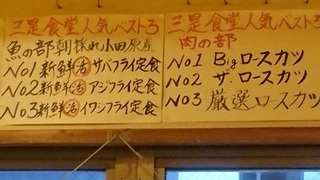 三是食堂人気ベスト3
魚の部朝採れ小田原産
No1新鮮活サバフライ定食
No2新鮮活アジフライ定食
No3新鮮活イワシフライ定食
三是食堂人気ベスト3
肉の部
No1 Bigロースカツ
No2 ザ.ロースカツ
No3 厳選ロースカツ